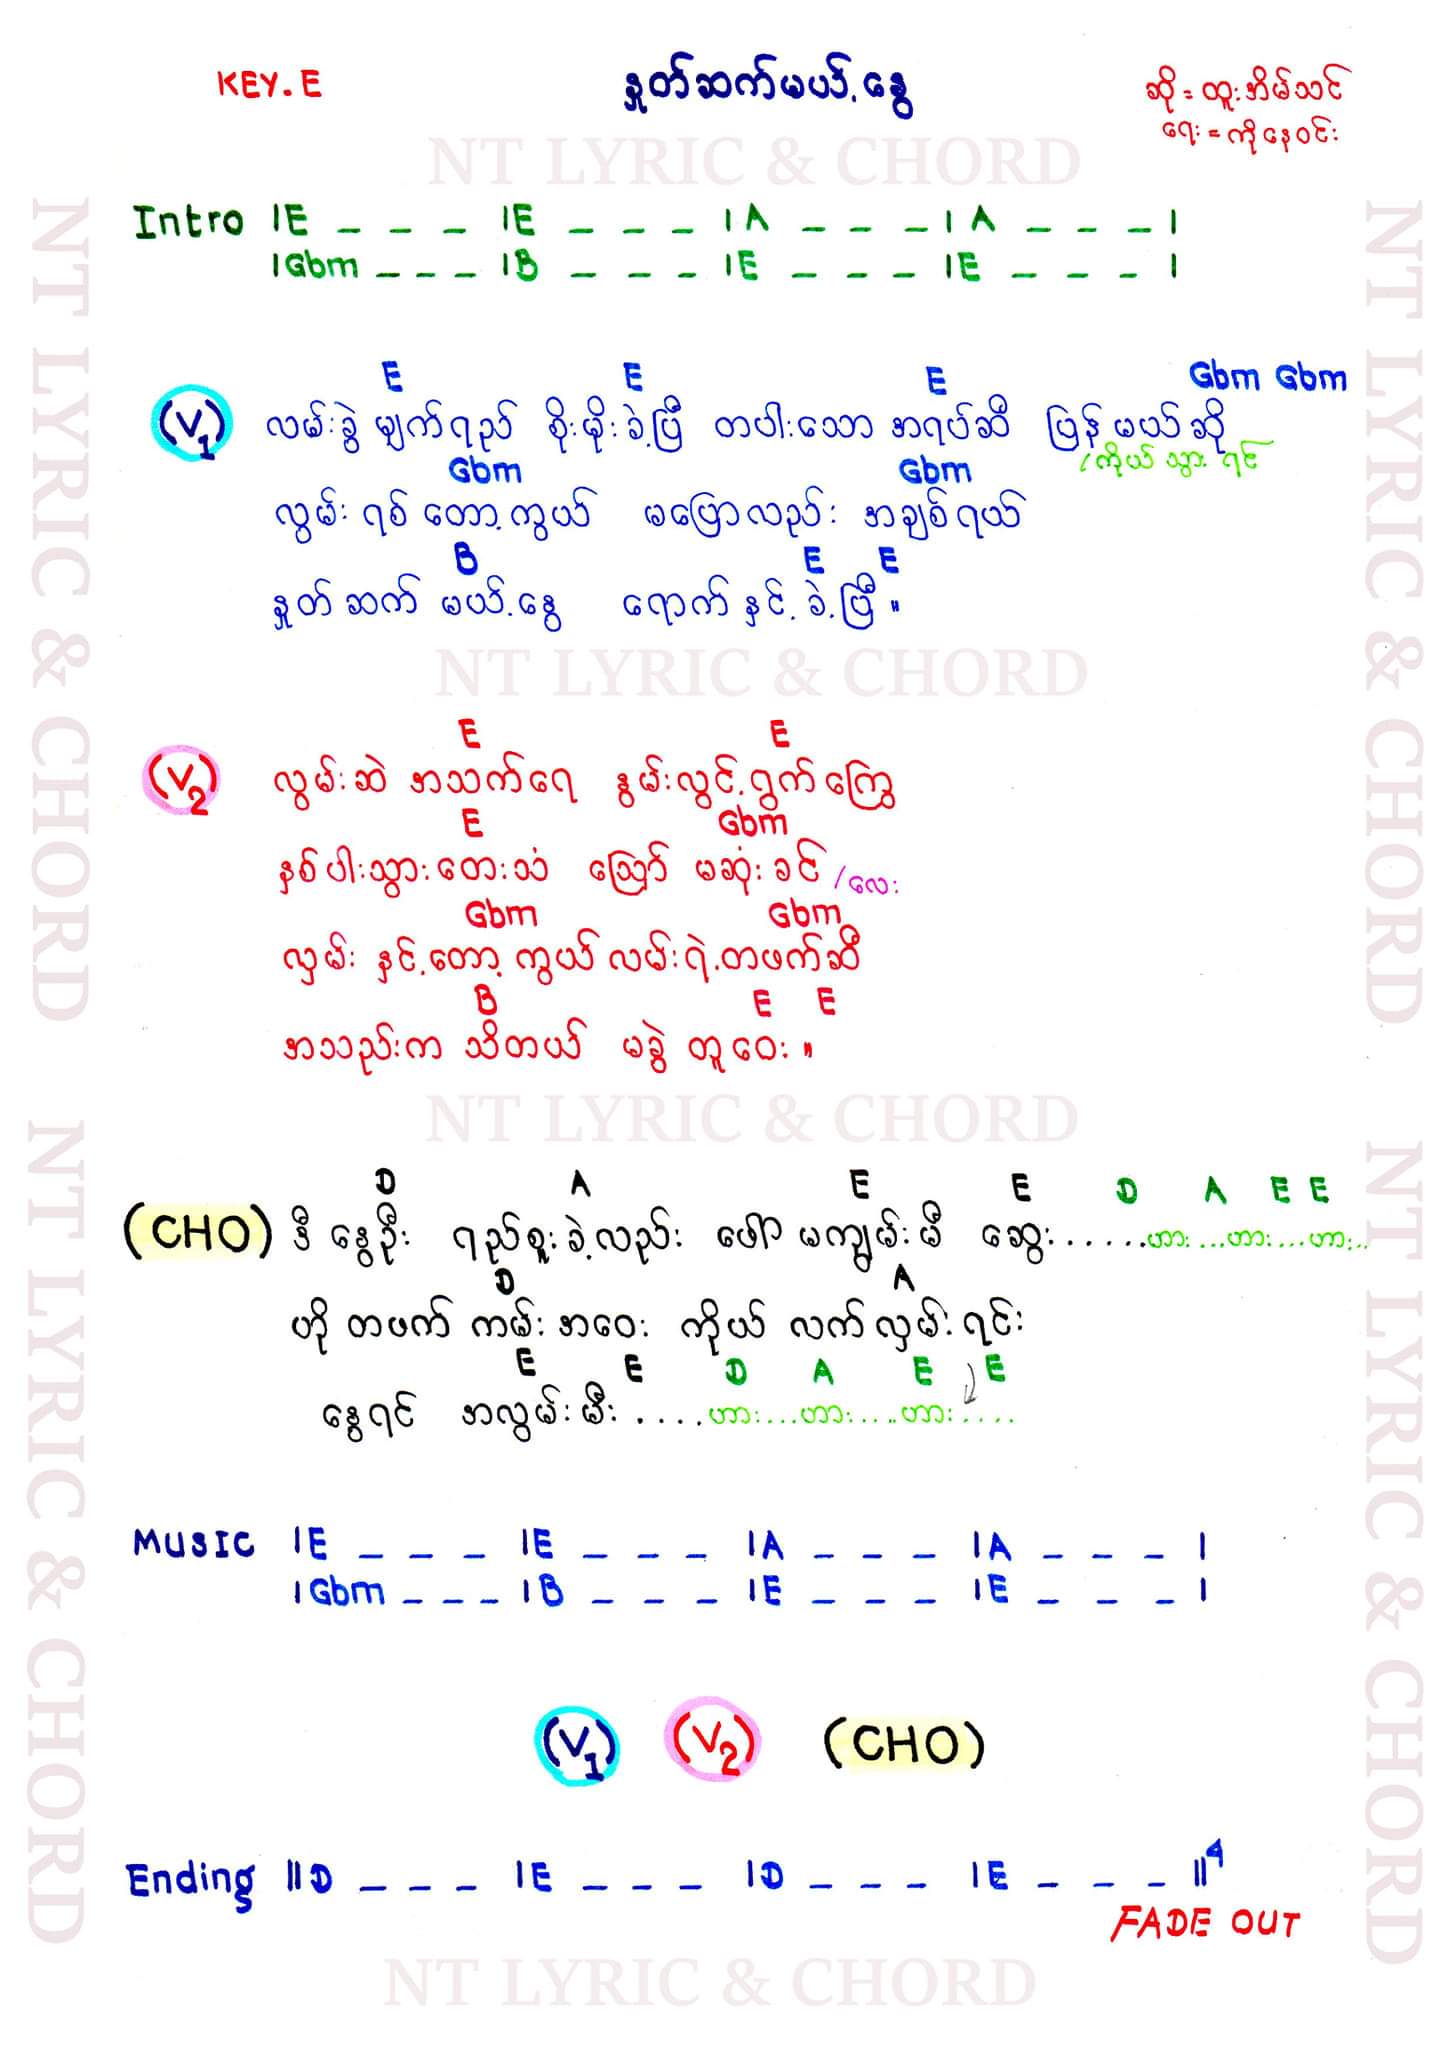 KEY. E
နှုတ်ဆက်မယ့်နွေ
ဆို = ထူးအိမ်သင်
ရေး = ကိုနေဝင်း
NT LYRIC & CHORD
Intro |E _ _ _ |E _ _ _ |A _ _ _ |A _ _ _ |
|Gbm _ _ _ |B _ _ _ |E _ _ _ |E _ _ _ |
E E E Gbm Gbm
(V1) လမ်းခွဲ မျက်ရည် စိုးမိုးခဲ့ပြီ တပါးသော အရပ်ဆီ ပြန်မယ်ဆို
/ကိုယ် သွား ရင်
Gbm Gbm
လွမ်းရစ်တော့ကွယ် မပြောလည်း အချစ်ရယ်
B E E
နှုတ်ဆက်မယ့်နွေ ရောက်နှင့်ခဲ့ပြီ။
NT LYRIC & CHORD
E E
(V2) လွမ်းဆဲ အသက်ရေ နွမ်းလွင့်ရွက်ကြွေ
E Gbm
နှစ်ပါးသွားတေးသံ သြော် မဆုံးခင် /လေး
Gbm Gbm
လှမ်းနှင့်တော့ကွယ် လမ်းရဲ့တဖက်ဆီ
B E E
အသည်းက သိတယ် မခွဲတူဝေး။
NT LYRIC & CHORD
D A E E D A E E
(CHO) ဒီနွေဦး ရည်စူးခဲ့လည်း ဖော်မကျွမ်းမီ ဆွေး......ဟား...ဟား...ဟား..
D A
ဟိုတဖက်ကမ်းအဝေး ကိုယ်လက်လှမ်းရင်း
E E D A E E
နွေရင် အလွမ်းမီး ....ဟား...ဟား....ဟား....
MUSIC |E _ _ _ |E _ _ _ |A _ _ _ |A _ _ _ |
|Gbm _ _ _ |B _ _ _ |E _ _ _ |E _ _ _ |
(V1) (V2) (CHO)
Ending ||D _ _ _ |E _ _ _ |D _ _ _ |E _ _ _ ||4
FADE OUT
NT LYRIC & CHORD
NT LYRIC & CHORD
NT LYRIC & CHORD
NT LYRIC & CHORD
NT LYRIC & CHORD